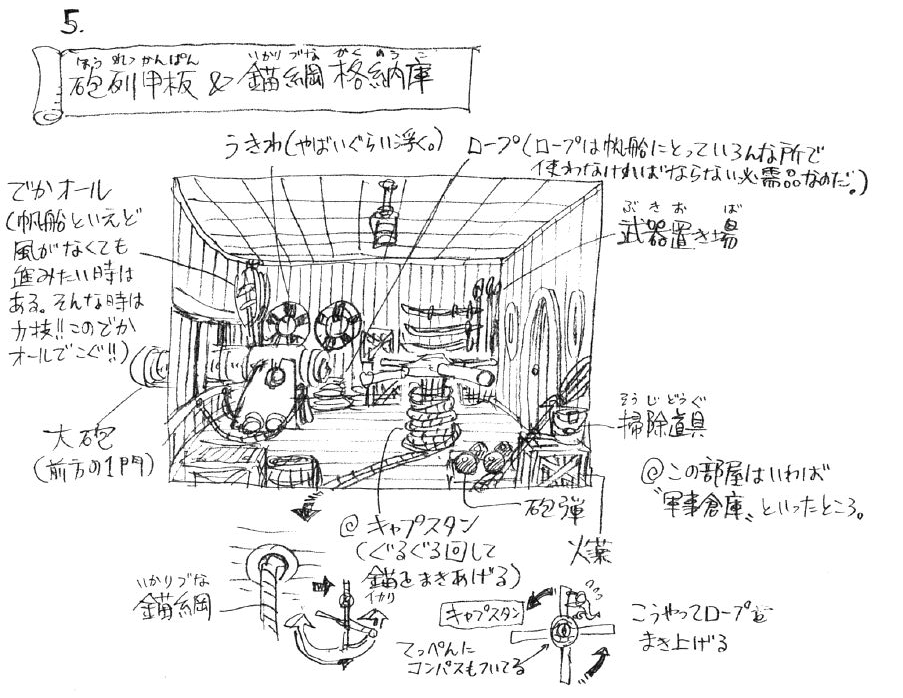 5.
ほうれつかんぱん いかりづなかくのうこ
砲列甲板 & 錨綱格納庫
うきわ(やばいぐらい浮く。)
ロープ(ロープは帆船にとっていろんな所で
使わなければならない必需品なのだ。)
でかオール
(帆船といえど
風がなくても
進みたい時は
ある。そんな時は
力技!!このでか
オールでこぐ!!)
ぶきおきば
武器置き場
大砲
(前方の1門)
そうじどうぐ
掃除道具
@この部屋はいわば
〝軍事倉庫〟といったところ。
砲弾
火薬
@キャプスタン
(ぐるぐる回して
錨をまきあげる)
イカリ
いかりづな
錨綱
キャプスタン
てっぺんに
コンパスもついてる
こうやってロープを
まき上げる